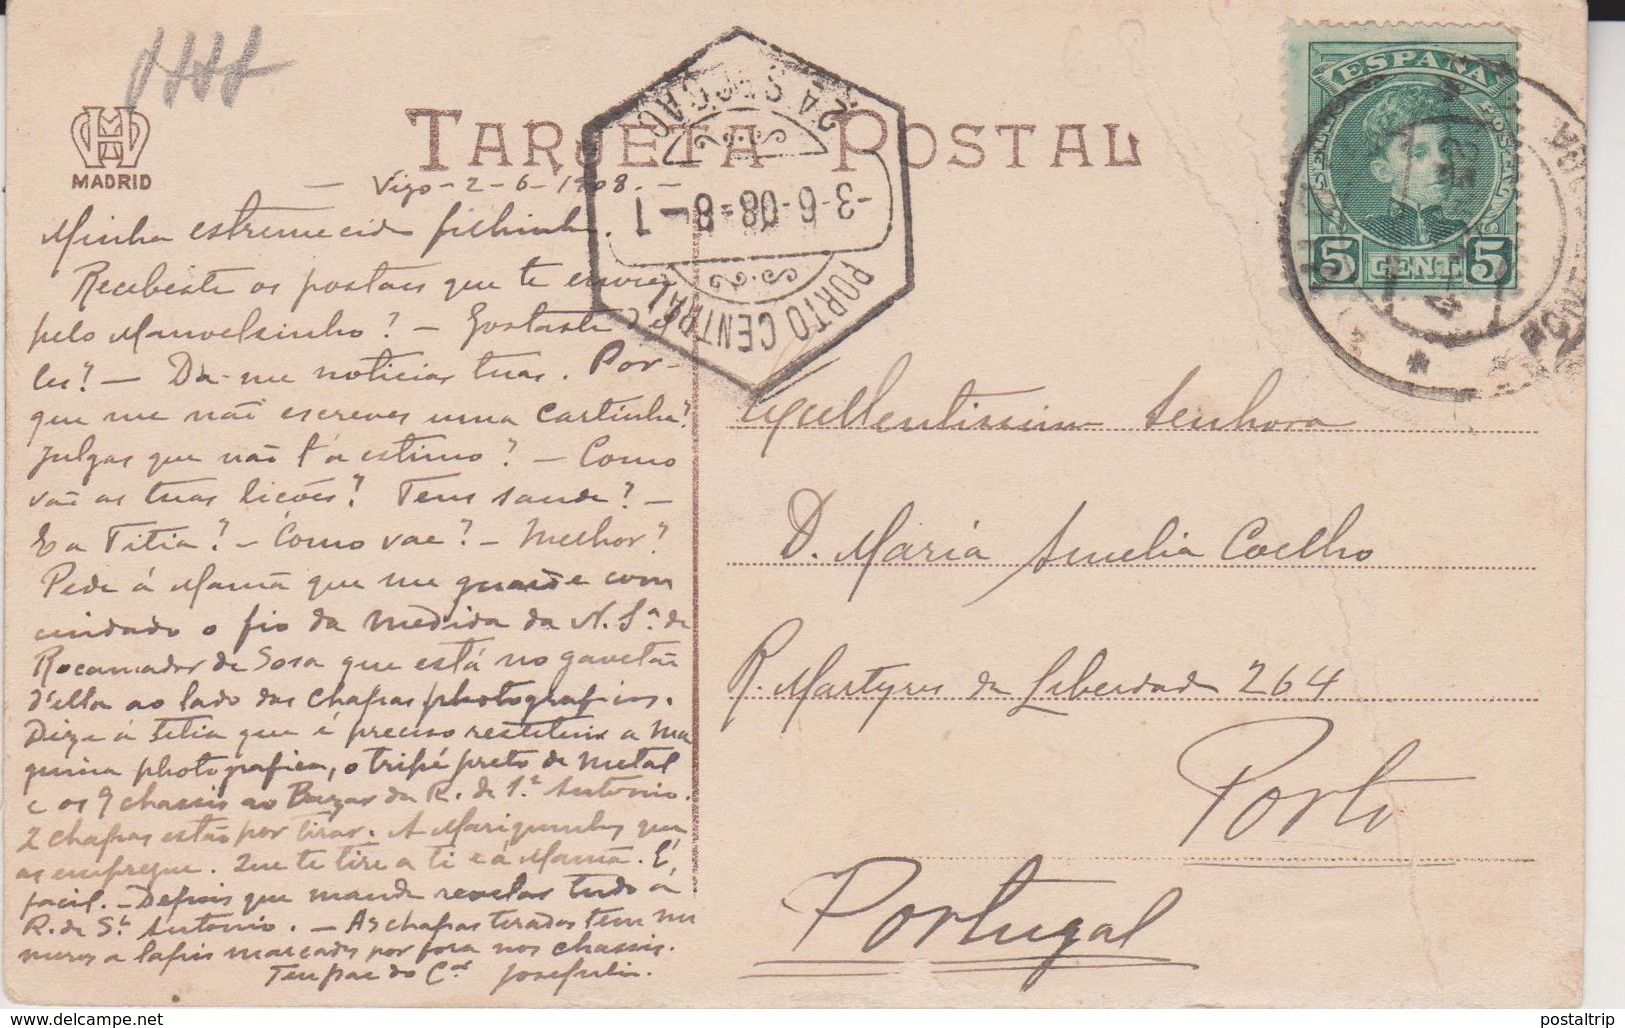 MADRID
TARJETA POSTAL
2A SECÇÃO
3-6-08=8-1
PORTO CENTRAL
ESPAÑA
5 CENT. 5
— Vigo - 2 - 6 - 1908. —
Minha estremecida filhinha.
Recebeste os postaes que te enviei
pelo Manoelsinho? — Gostaste d'el-
les? — Dá-me noticias tuas. Por-
que me não escreves uma cartinha?
Julgas que não t'a estimo? — Como
vão as tuas lições? Tens saude? —
E a Titia? — Como vae? — Melhor?
Pede á Mamã que me guarde com
cuidado o fio da medida da N. Sra de
Rocamador de Sosa que está no gavetão
d'ella ao lado das chapas photographicas.
Dize á titia que é preciso restituir a ma
quina photografica, o tripé preto de metal
e os 9 chassis ao Bazar da R. de Sto Antonio.
2 chapas estão por tirar. A Mariquinhas que
as empregue. Que te tire a ti e á Mamã. É
facil. — Depois que mande revelar tudo á
R. de Sto Antonio. — As chapas tiradas tem nu
meros a lapis marcados por fora nos chassis.
Teu pae do Cor Josefulin.
Excellentissima Senhora
D. Maria Amelia Coelho
R. Martyres da Liberdade 264
Porto
Portugal
www.delcampe.net
postaltrip